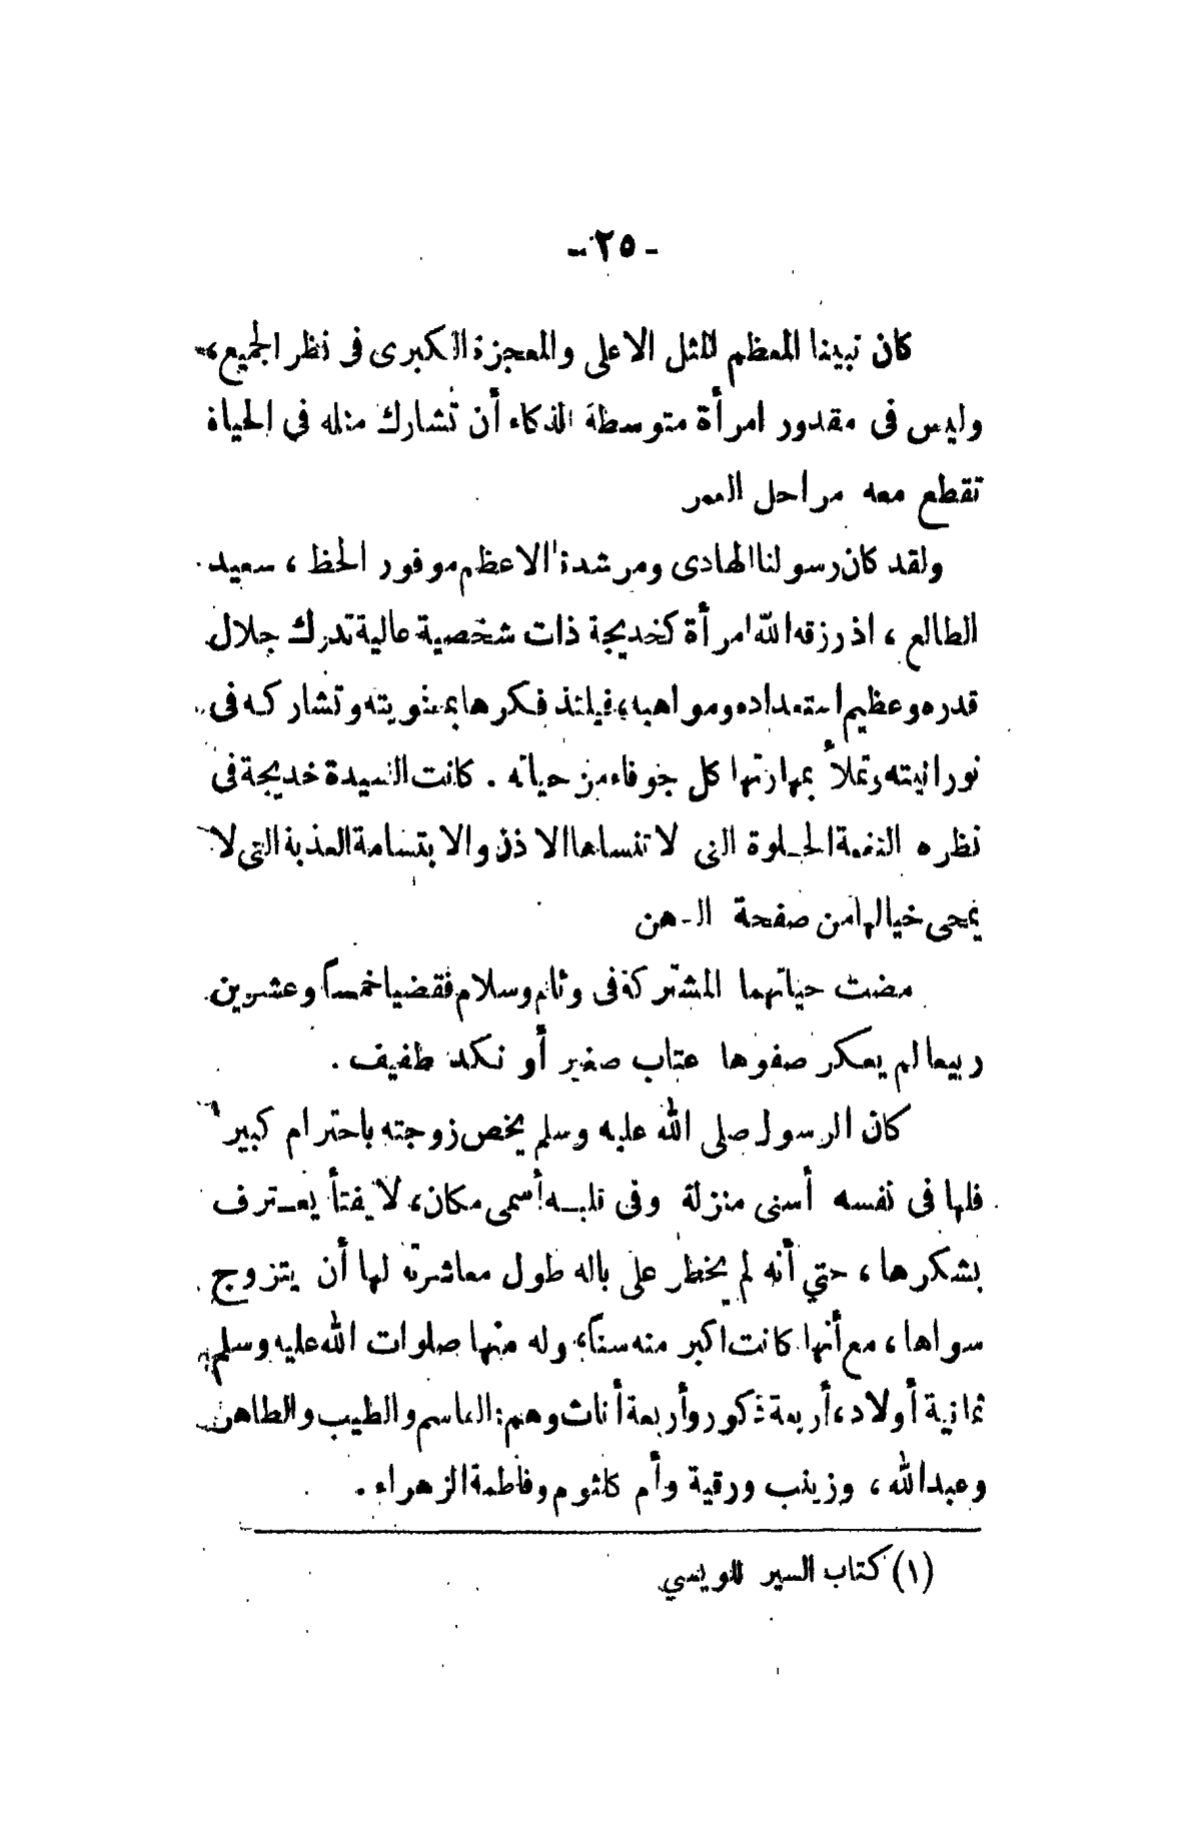 - ٢٥ -
كان نبينا المعظم المثل الاعلى والمعجزة الكبرى فى نظر الجميع،
وليس فى مقدور امرأة متوسطة الذكاء أن تشارك مثله فى الحياة
تقطع معه مراحل العمر
ولقد كان رسولنا الهادى ومرشدنا الاعظم موفور الحظ ، سعيد
الطالع ، اذ رزقه الله امرأة كخديجة ذات شخصية عالية تدرك جلال
قدره وعظيم استعداده ومواهبه، فيلتذ فكرها بمعنويته وتشاركه فى
نورانيته وتملأ بمهارتها كل جوفاء من حياته . كانت السيدة خديجة فى
نظره النغمة الحلوة التى لا تنساها الاذن والابتسامة العذبة التى لا
يمحى خيالها من صفحة الـهن
مضت حياتهما المشتركة فى وئام وسلام فقضيا خمساً وعشرين
ربيعا لم يعكر صفوها عتاب صغير أو نكد طفيف .
كان الرسول صلى الله عليه وسلم يخص زوجته باحترام كبير
فلها فى نفسه أسنى منزلة وفى قلبـه أسمى مكان، لا يفتأ يعـترف
بشكرها ، حتي أنه لم يخطر على باله طول معاشرته لها أن يتزوج
سواها ، مع أنها كانت اكبر منه سناً، وله منها صلوات الله عليه وسلم
ثمانية أولاد، أربعة ذكور وأربعة أناث وهم: القاسم والطيب والطاهر
وعبدالله ، وزينب ورقية وأم كلثوم وفاطمة الزهراء .
(١) كتاب السير للويسي